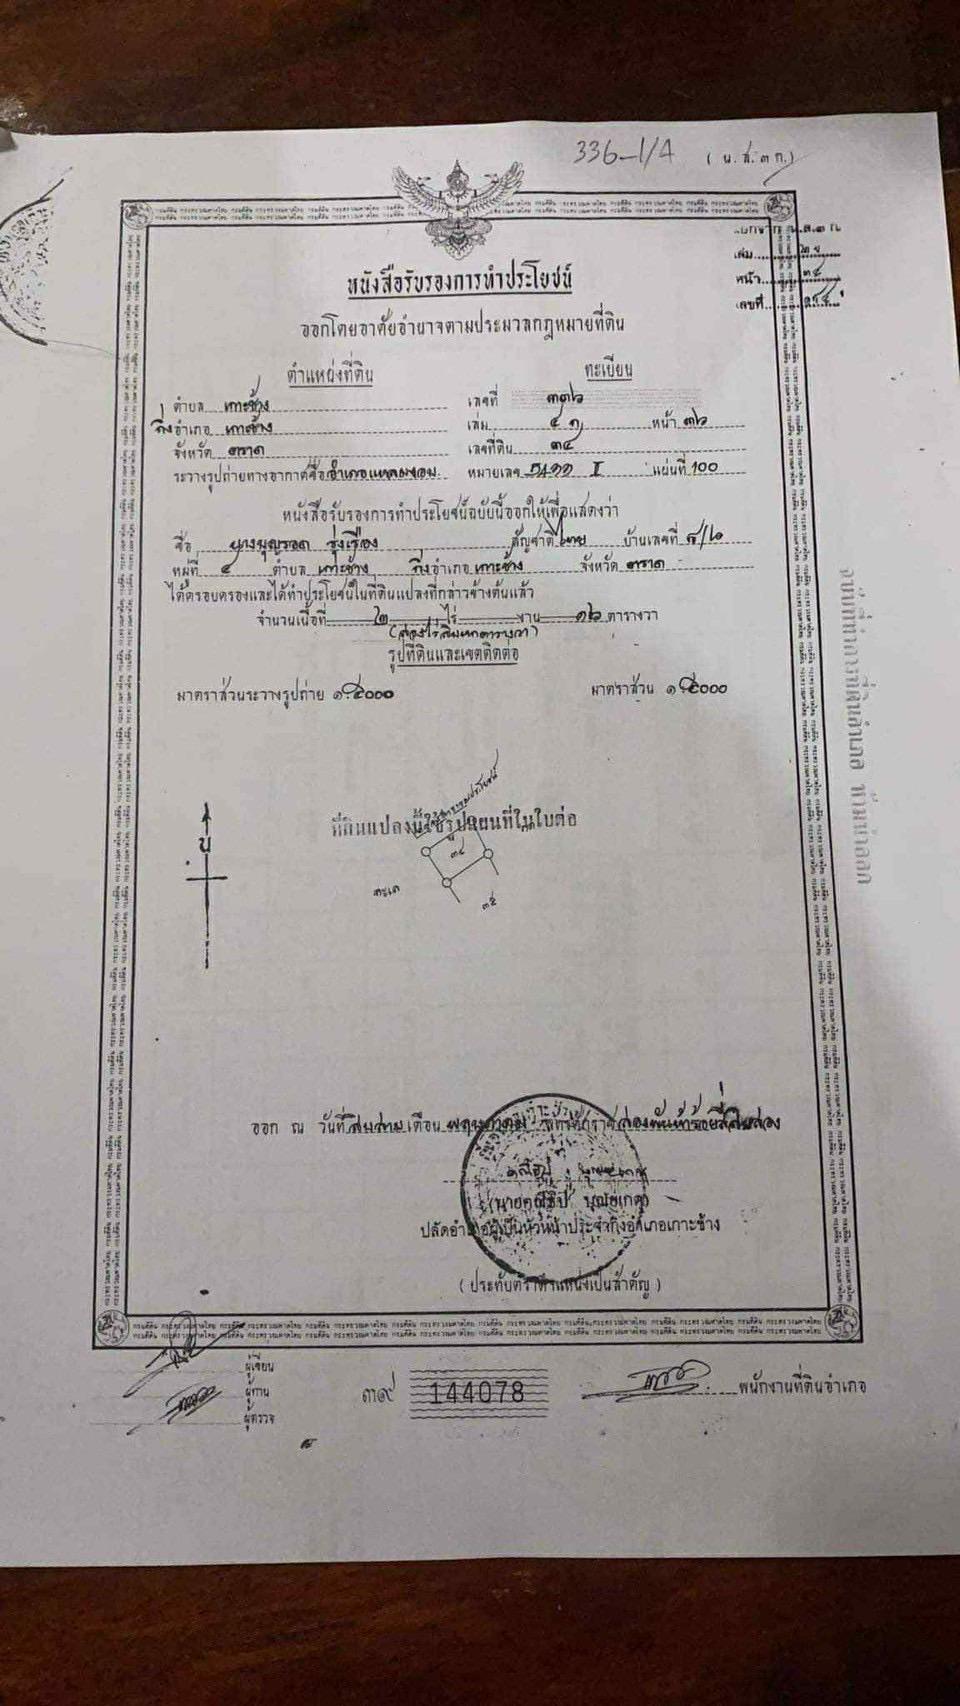 336-1/4 (น.ส.๓ ก.)
เล่ม
หน้า ๓๔
เลขที่
หนังสือรับรองการทำประโยชน์
ออกโดยอาศัยอำนาจตามประมวลกฎหมายที่ดิน
ตำแหน่งที่ดิน ทะเบียน
ตำบล เกาะช้าง เลขที่ ๓๓๖
กิ่งอำเภอ เกาะช้าง เล่ม ๔ ก หน้า ๓๖
จังหวัด ตราด เลขที่ดิน ๓๔
ระวางรูปถ่ายทางอากาศชื่อ อำเภอแหลมงอบ หมายเลข 5411 I แผ่นที่ 100
หนังสือรับรองการทำประโยชน์ฉบับนี้ออกให้เพื่อแสดงว่า
ชื่อ นางบุญรอด รุ่งเรือง สัญชาติ ไทย บ้านเลขที่ ๘/๖
หมู่ที่ ๔ ตำบล เกาะช้าง กิ่งอำเภอ เกาะช้าง จังหวัด ตราด
ได้ครอบครองและได้ทำประโยชน์ในที่ดินแปลงที่กล่าวข้างต้นแล้ว
จำนวนเนื้อที่ ๒ ไร่ งาน ๑๖ ตารางวา
(สองไร่สิบหกตารางวา)
รูปที่ดินและเขตติดต่อ
มาตราส่วนระวางรูปถ่าย ๑:๕๐๐๐ มาตราส่วน ๑:๕๐๐๐
น
ที่ดินแปลงนี้ใช้รูปแผนที่ในใบต่อ
๓๔
ทะเล
๓๕
ออก ณ วันที่ สิบสาม เดือน พฤษภาคม พุทธศักราช สองพันห้าร้อยสี่สิบสอง
ปลัดอำเภอผู้เป็นหัวหน้าประจำกิ่งอำเภอเกาะช้าง
(ประทับตราตำแหน่งเป็นสำคัญ)
ผู้เขียน
ผู้ทาน
ผู้ตรวจ
๓๙ 144078 พนักงานที่ดินอำเภอ